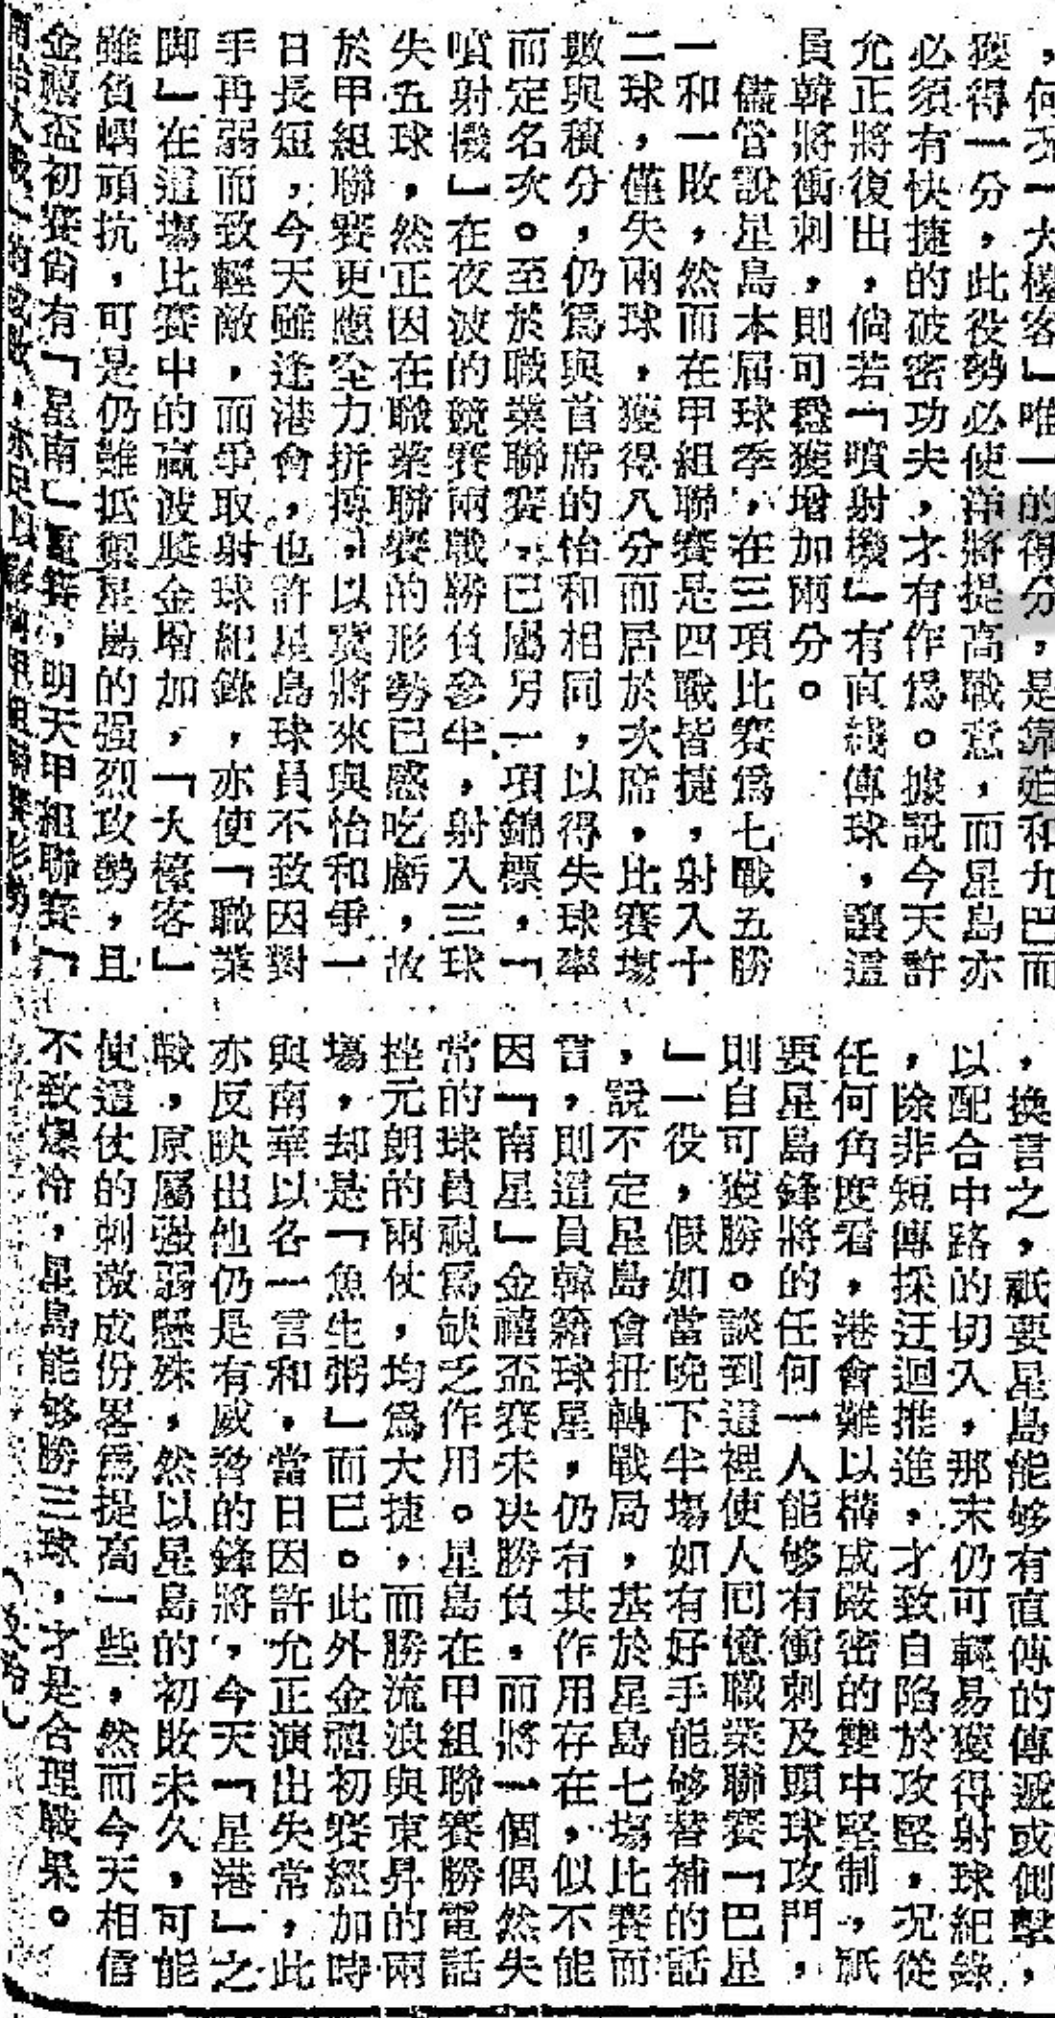 ，何況「大檯客」唯一的得分，是靠迫和九巴而
獲得一分，此役勢必使洋將提高戰意，而星島亦
必須有快捷的破密功夫，才有作爲。據説今天許
允正將復出，倘若「噴射機」有直綫傳球，讓這
員韓將衝刺，則可穩獲增加兩分。
儘管説星島本屆球季，在三項比賽爲七戰五勝
一和一敗，然而在甲組聯賽是四戰皆捷，射入十
二球，僅失兩球，獲得八分而居於次席，比賽塲
數與積分，仍爲與首席的怡和相同，以得失球率
而定名次。至於職業聯賽，已屬另一項錦標，「
噴射機」在夜波的競賽兩戰勝負參半，射入三球
失五球，然正因在職業聯賽的形勢已感吃虧，故
於甲組聯賽更應全力拼搏，以冀將來與怡和爭一
日長短，今天雖逢港會，也許星島球員不致因對
手再弱而致輕敵，而爭取射球紀錄，亦使「職業
脚」在這塲比賽中的贏波獎金增加，「大檯客」
雖負嵎頑抗，可是仍難抵禦星島的强烈攻勢，且
金禧盃初賽尚有「星南」重賽，明天甲組聯賽「
，換言之，祇要星島能够有直傳的傳遞或側擊，
以配合中路的切入，那末仍可輕易獲得射球紀錄
，除非短傳採迂迴推進，才致自陷於攻堅，况從
任何角度看，港會難以構成嚴密的雙中堅制，祇
要星島鋒將的任何一人能够有衝刺及頭球攻門，
則自可獲勝。談到這裡使人回憶職業聯賽「巴星
」一役，假如當晚下半塲如有好手能够替補的話
，説不定星島會扭轉戰局，基於星島七塲比賽而
言，則這員韓籍球星，仍有其作用存在，似不能
因「南星」金禧盃賽未決勝負，而將一個偶然失
常的球員視爲缺乏作用。星島在甲組聯賽勝電話
挫元朗的兩仗，均爲大捷，而勝流浪與東昇的兩
塲，却是「魚生粥」而巳。此外金禧初賽經加時
與南華以各一言和，當日因許允正演出失常，此
亦反映出他仍是有威脅的鋒將，今天「星港」之
戰，原屬强弱懸殊，然以星島的初敗未久，可能
使這仗的刺激成份畧爲提高一些，然而今天相信
不致爆冷，星島能够勝三球，才是合理戰果。